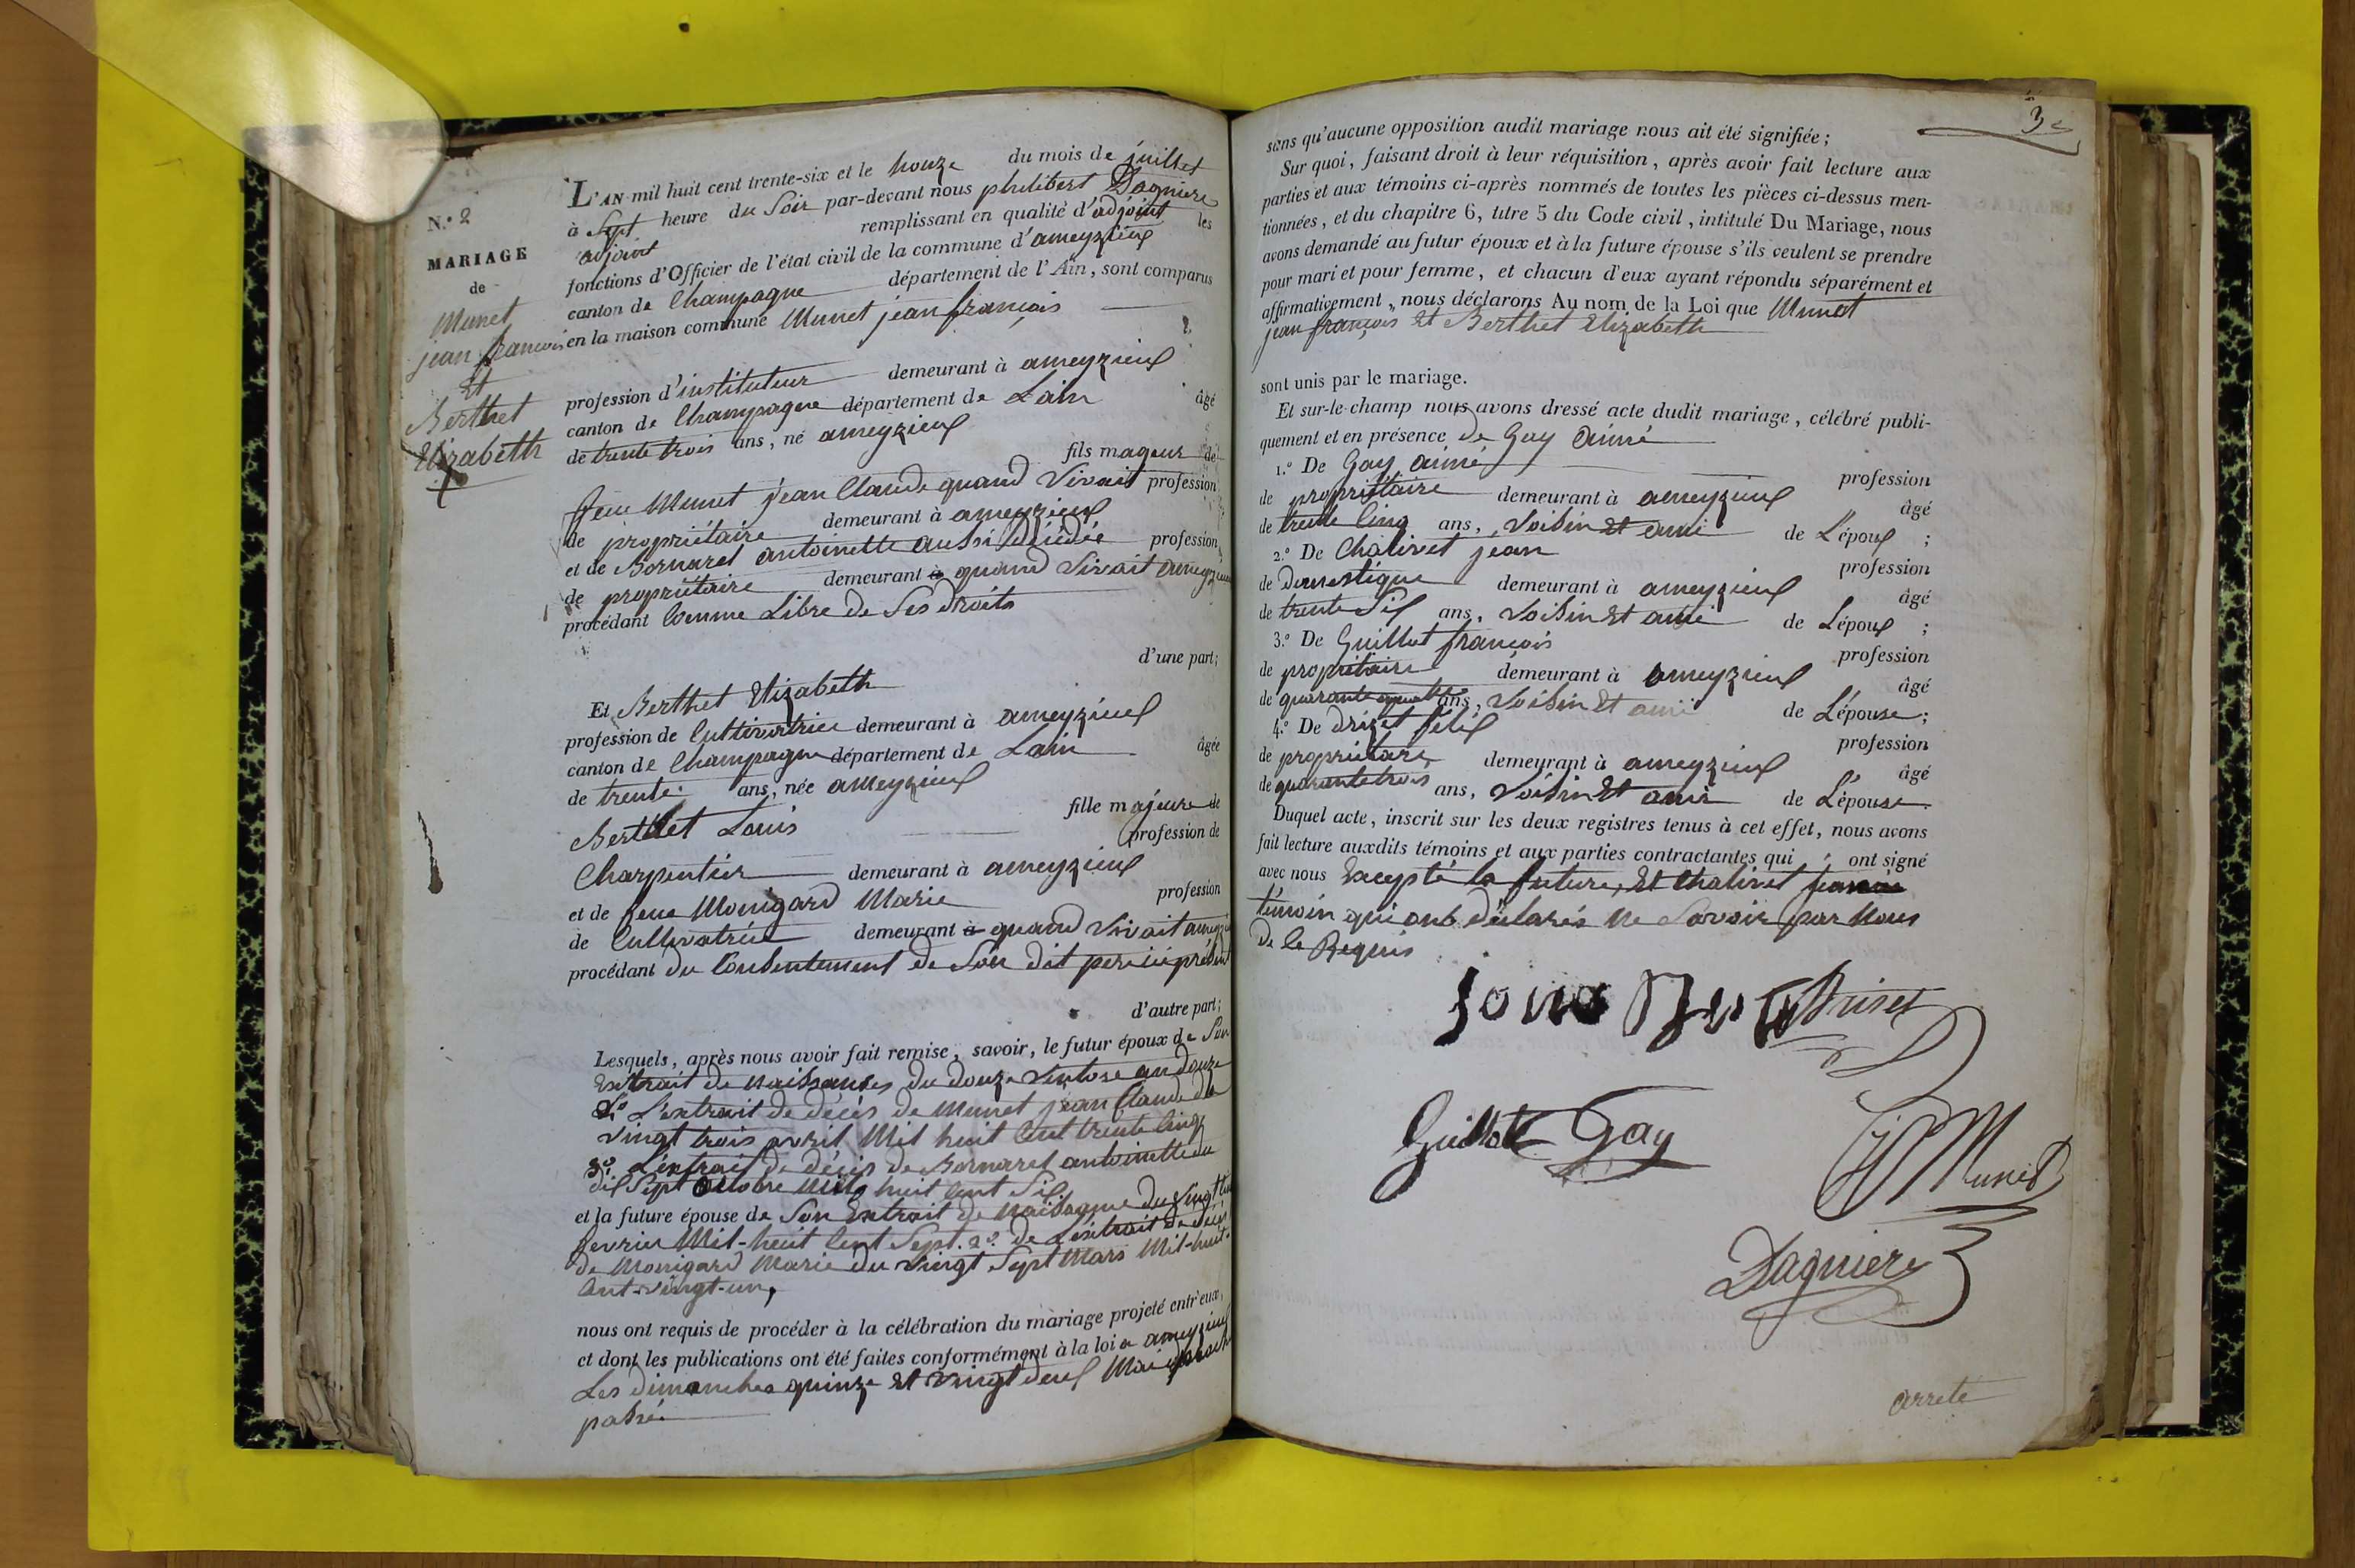 N.º 2
MARIAGE
de
Munet
jean francois
Et
Berthet
Elizabeth
L'AN mil huit cent trente-six et le honze du mois de juillet
à Sept heure du Soir par-devant nous philibert Dagniere
adjoint remplissant en qualité d'adjoint les
fonctions d'Officier de l'état civil de la commune d'ameyzieux
canton de Champagne département de l'Ain, sont comparus
en la maison commune Munet jean françois
profession d'instituteur demeurant à ameyzieux
canton de Champagne département de Lain âgé
de trente trois ans, né ameyzieux
fils mageur de
feue Munet jean Claude quand Vivait profession
de propriétaire demeurant à ameyzieux
et de Bornarel antoinette aussi décédée profession
de propriétaire demeurant à quand Vivait ameyzieux
procédant Comme Libre de Ses droits
d'une part;
Et Berthet Elizabeth
profession de Cultivatrice demeurant à ameyzieux
canton de Champagne département de Lain âgée
de trente ans, née ameyzieux
fille majeure de
Berthet Louis profession de
Charpentier demeurant à ameyzieux
et de feue Monigard Marie profession
de Cultivatrice demeurant à quand Vivait
procédant du Consentement de Son dit père ici présent
d'autre part;
Lesquels, après nous avoir fait remise, savoir, le futur époux de Son
Extrait de Naissances du douze Ventose an douze
2º L'extrait de décès de Munet jean Claude du
Vingt trois avril Mil huit Cent trente Cinq
3º L'extrait de décès de Bornarel antoinette du
dix Sept Octobre Mil huit Cent Six
et la future épouse de Son Extrait de Naissance du Vingt
fevrier Mil-huit Cent Sept. 2º de L'extrait de décès
de Monigard Marie du Vingt Sept Mars Mil-huit-
Cent-Vingt-un,
nous ont requis de procéder à la célébration du mariage projeté entr'eux,
et dont les publications ont été faites conformément à la loi a ameyzieux
Les dimanches quinze et Vingt deux Mai
passé
3
sans qu'aucune opposition audit mariage nous ait été signifiée;
Sur quoi, faisant droit à leur réquisition, après avoir fait lecture aux
parties et aux témoins ci-après nommés de toutes les pièces ci-dessus men-
tionnées, et du chapitre 6, titre 5 du Code civil, intitulé Du Mariage, nous
avons demandé au futur époux et à la future épouse s'ils veulent se prendre
pour mari et pour femme, et chacun d'eux ayant répondu séparément et
affirmativement, nous déclarons Au nom de la Loi que Munet
jean françois Et Berthet Elizabeth
sont unis par le mariage.
Et sur-le-champ nous avons dressé acte dudit mariage, célébré publi-
quement et en présence de Gay aimé
1.º De Gay aimé profession
de propriétaire demeurant à ameyzieux âgé
de trente Cinq ans, Voisin et ami de L'époux;
2.º De Chalivet jean profession
de domestique demeurant à ameyzieux âgé
de trente Six ans, Voisin Et ami de L'époux;
3.º De Guillot françois profession
de propriétaire demeurant à ameyzieux âgé
de quarante quatre ans, Voisin Et ami de L'épouse;
4.º De drizet félix profession
de propriétaire demeurant à ameyzieux âgé
de quarante trois ans, Voisin Et ami de L'épouse.
Duquel acte, inscrit sur les deux registres tenus à cet effet, nous avons
fait lecture auxdits témoins et aux parties contractantes qui ont signé
avec nous Excepté la future, Et Chalivet
témoin qui ont déclarés Ne Savoir par Nous
de le Requis
Driset
Guillot Gay
Munet
Dagniere
arreté